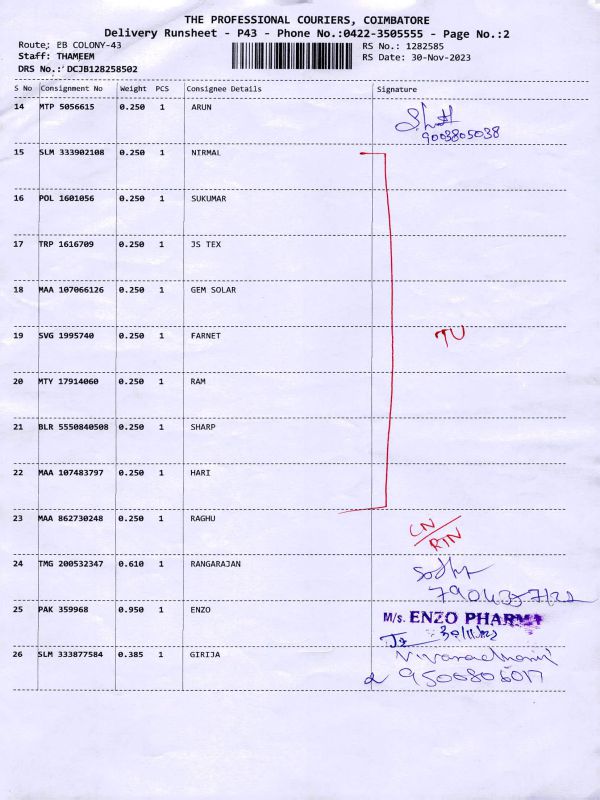 THE PROFESSIONAL COURIERS, COIMBATORE
Delivery Runsheet - P43 - Phone No.:0422-3505555 - Page No.:2
Route: EB COLONY-43 RS No.: 1282585
Staff: THAMEEM RS Date: 30-Nov-2023
DRS No.: DCJB128258502
S No Consignment No Weight PCS Consignee Details Signature
14 MTP 5056615 0.250 1 ARUN
9003805038
15 SLM 333902108 0.250 1 NIRMAL
16 POL 1601056 0.250 1 SUKUMAR
17 TRP 1616709 0.250 1 JS TEX
18 MAA 107066126 0.250 1 GEM SOLAR
19 SVG 1995740 0.250 1 FARNET
TU
20 MTY 17914060 0.250 1 RAM
21 BLR 5550840508 0.250 1 SHARP
22 MAA 107483797 0.250 1 HARI
23 MAA 862730248 0.250 1 RAGHU
LN/RTN
24 TMG 200532347 0.610 1 RANGARAJAN
25 PAK 359968 0.950 1 ENZO
M/s. ENZO PHARMA
26 SLM 333877584 0.385 1 GIRIJA
9500806017